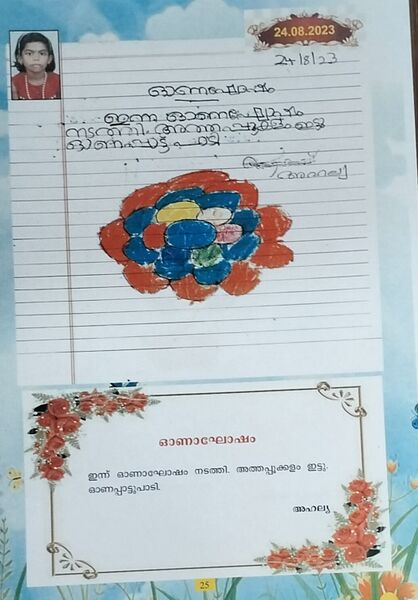 24.08.2023
24/8/23
ഓണാഘോഷം
ഇന്ന് ഓണാഘോഷം
നടത്തി. അത്തപ്പൂക്കളം ഇട്ടു
ഓണപ്പാട്ട് പാടി
അഹല്യ
ഓണാഘോഷം
ഇന്ന് ഓണാഘോഷം നടത്തി. അത്തപ്പൂക്കളം ഇട്ടു.
ഓണപ്പാട്ടുപാടി.
അഹല്യ
25